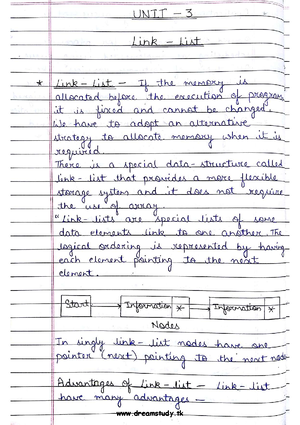 UNIT - 3
Link - List
* Link-List - If the memory is
allocated before the execution of program
it is fixed and cannot be changed.
We have to adopt an alternative
strategy to allocate memory when it is
required.
There is a special data-structure called
link-list that provides a more flexible
storage system and it does not require
the use of array.
"Link-lists are special lists of some
data elements link to one another. The
logical ordering is represented by having
each element pointing to the next
element.
Start Information * Information *
Nodes
In singly link-list nodes have one
pointer (next) pointing to the next node
Advantages of Link-list - Link-list
have many advantages -
www.dreamstudy.tk